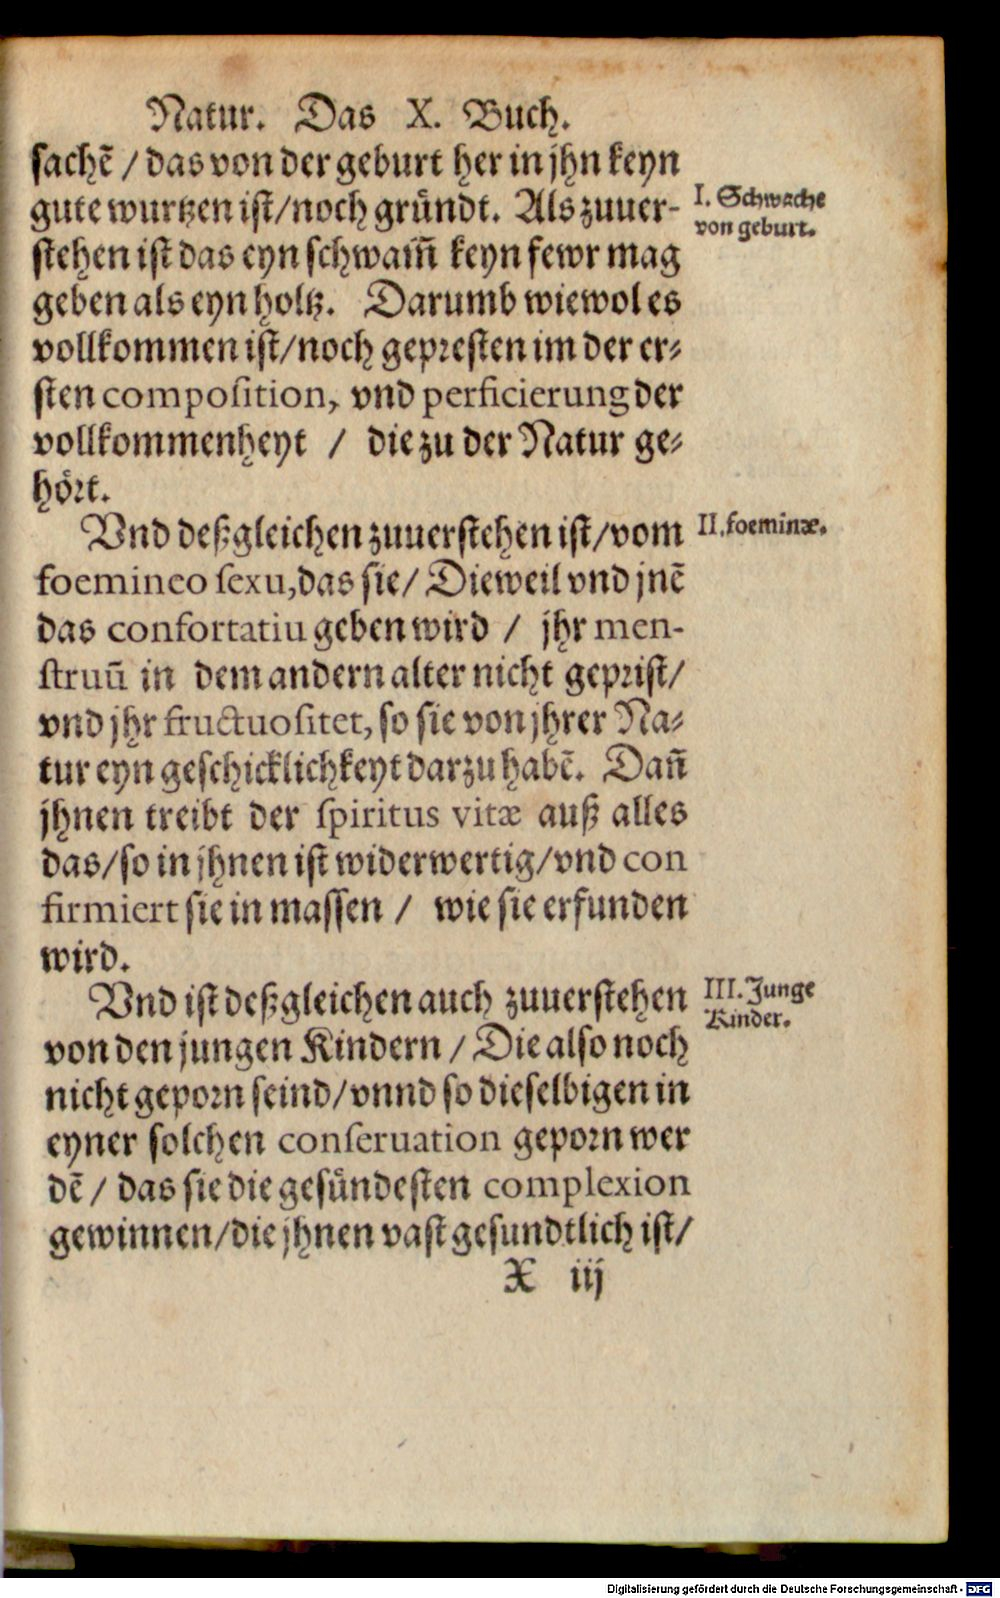 Natur. Das X. Buch.
sachē / das von der geburt her in jhn keyn
gute wurtzen ist/noch gründt. Als zuuer-
I. Schwache
von geburt.
stehen ist das eyn schwam̄ keyn fewr mag
geben als eyn holtz. Darumb wiewol es
vollkommen ist/noch gepresten im der er-
sten composition, vnd perficierung der
vollkommenheyt / die zu der Natur ge-
hört.
Vnd deßgleichen zuuerstehen ist/vom
II. foeminæ.
foemineo sexu, das sie/ Dieweil vnd jnē
das confortatiu geben wird / jhr men-
struū in dem andern alter nicht geprist/
vnd jhr fructuositet, so sie von jhrer Na-
tur eyn geschicklichkeyt darzu habē. Dan̄
jhnen treibt der spiritus vitæ auß alles
das/so in jhnen ist widerwertig/vnd con
firmiert sie in massen / wie sie erfunden
wird.
Vnd ist deßgleichen auch zuuerstehen
III. Junge
Kinder.
von den jungen Kindern / Die also noch
nicht geporn seind/vnnd so dieselbigen in
eyner solchen conseruation geporn wer
dē / das sie die gesündesten complexion
gewinnen/die jhnen vast gesundtlich ist/
X iij
Digitalisierung gefördert durch die Deutsche Forschungsgemeinschaft - DFG